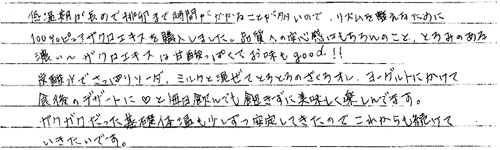 低温期が長めで排卵まで時間がかかることが多いので、リズムを整えるために
100%ピュアザクロエキスを購入しました。品質への安心感はもちろんのこと、とろみのある
濃い〜ザクロエキスは甘酸っぱくてお味もgood!!
炭酸水でさっぱりソーダ、ミルクと混ぜてとろとろのざくろオレ、ヨーグルトにかけて
食後のデザートに♡と毎日飲んでも飽きずに美味しく楽しんでます。
ガクガクだった基礎体温も少しずつ安定してきたのでこれからも続けて
いきたいです。